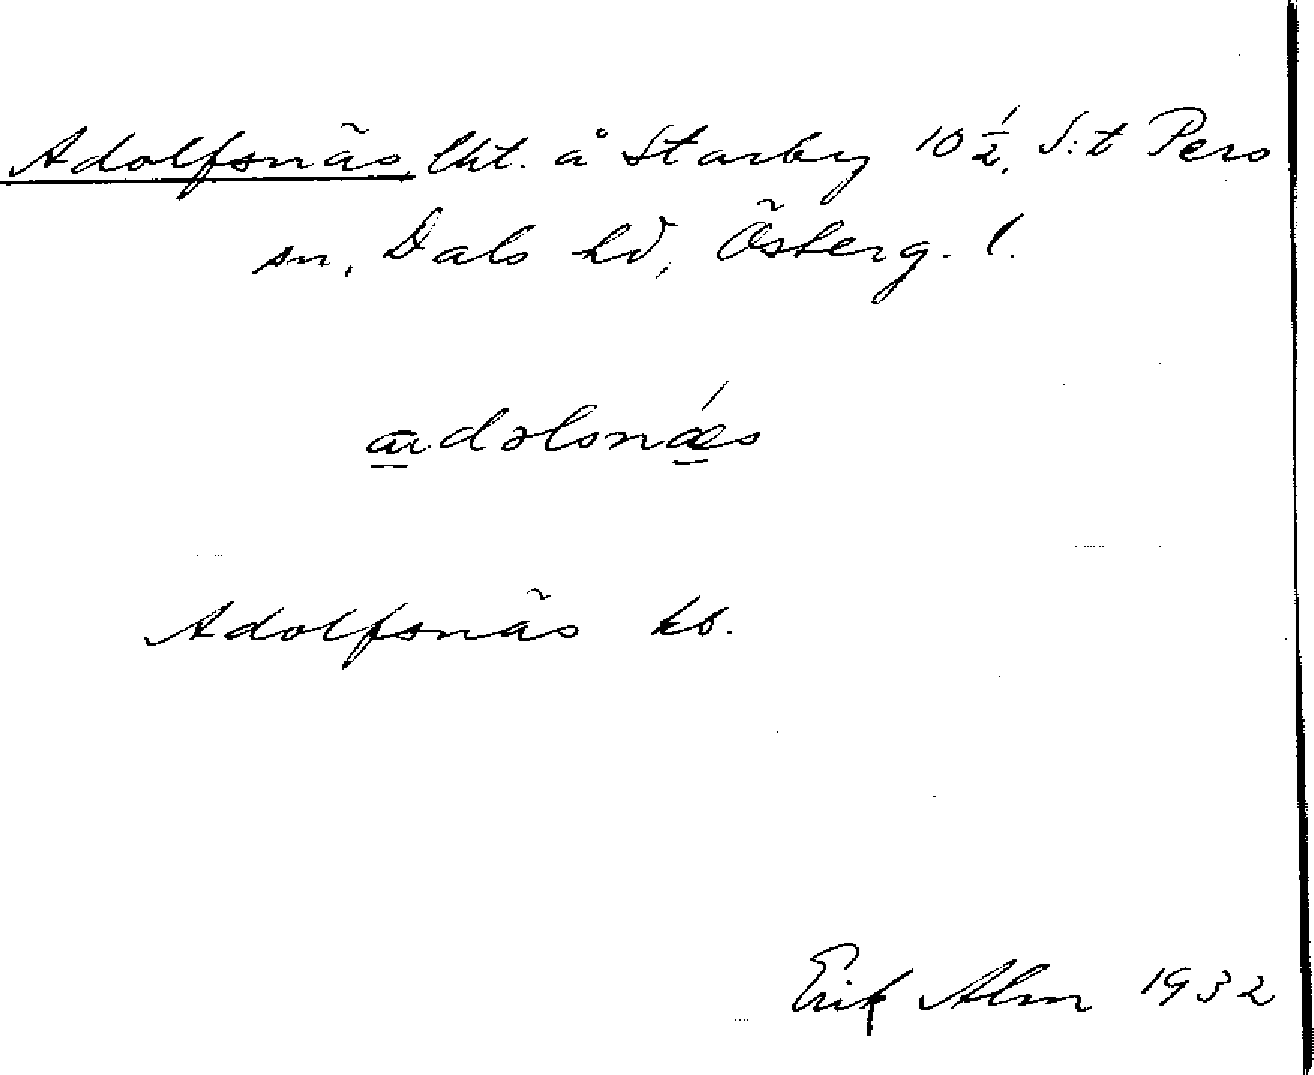 Adolfsnäs, lht. å Starby 10 ½, S:t Pers
sn, Dals hd, Österg. l.
a͟dɔlsnǽ͟s
Adolfsnäs kb.
Erik Alm 1932